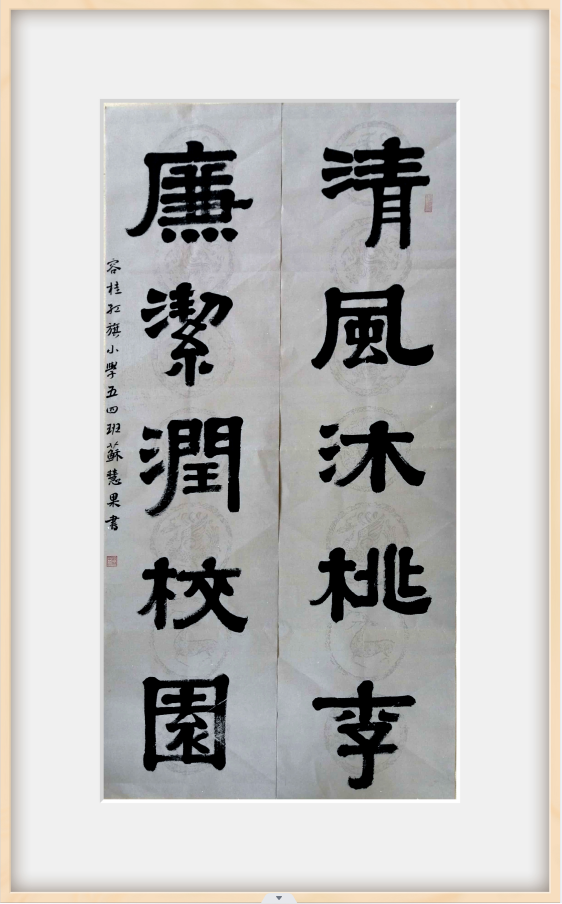 清風沐桃李
廉潔潤校園
容桂红旗小學五四班蘇慧果書